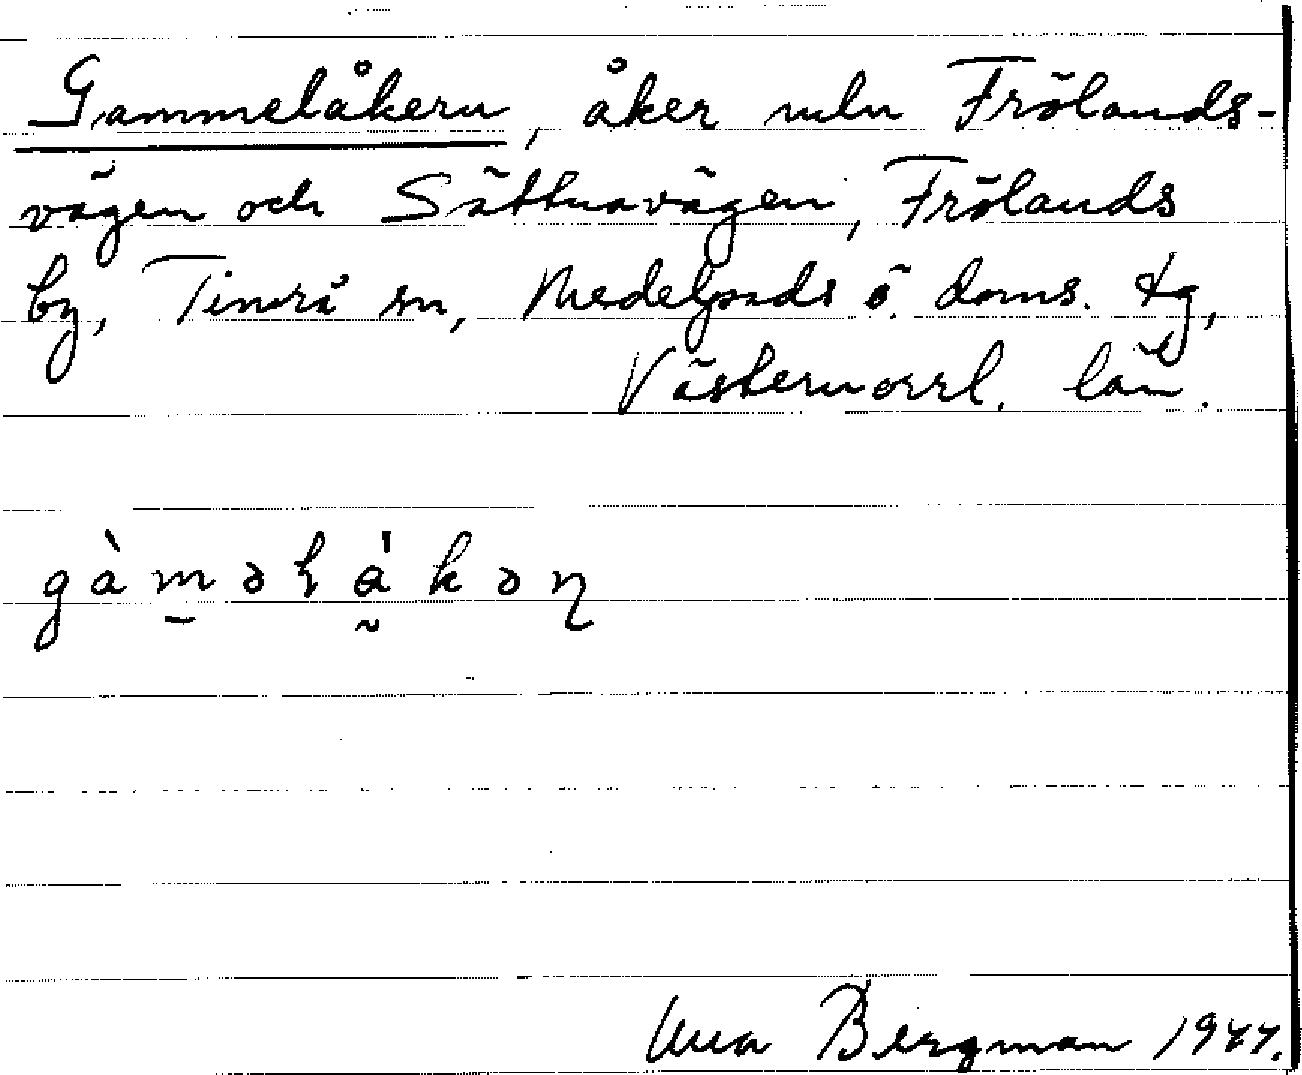 Gammelåkern, åker mln Frölands-
vägen och Sättnavägen, Frölands
by, Timrå sn, Medelpads ö. doms. tg,
Västernorrl. län.
gàmələ̀kəɳ
Bergman 1947.